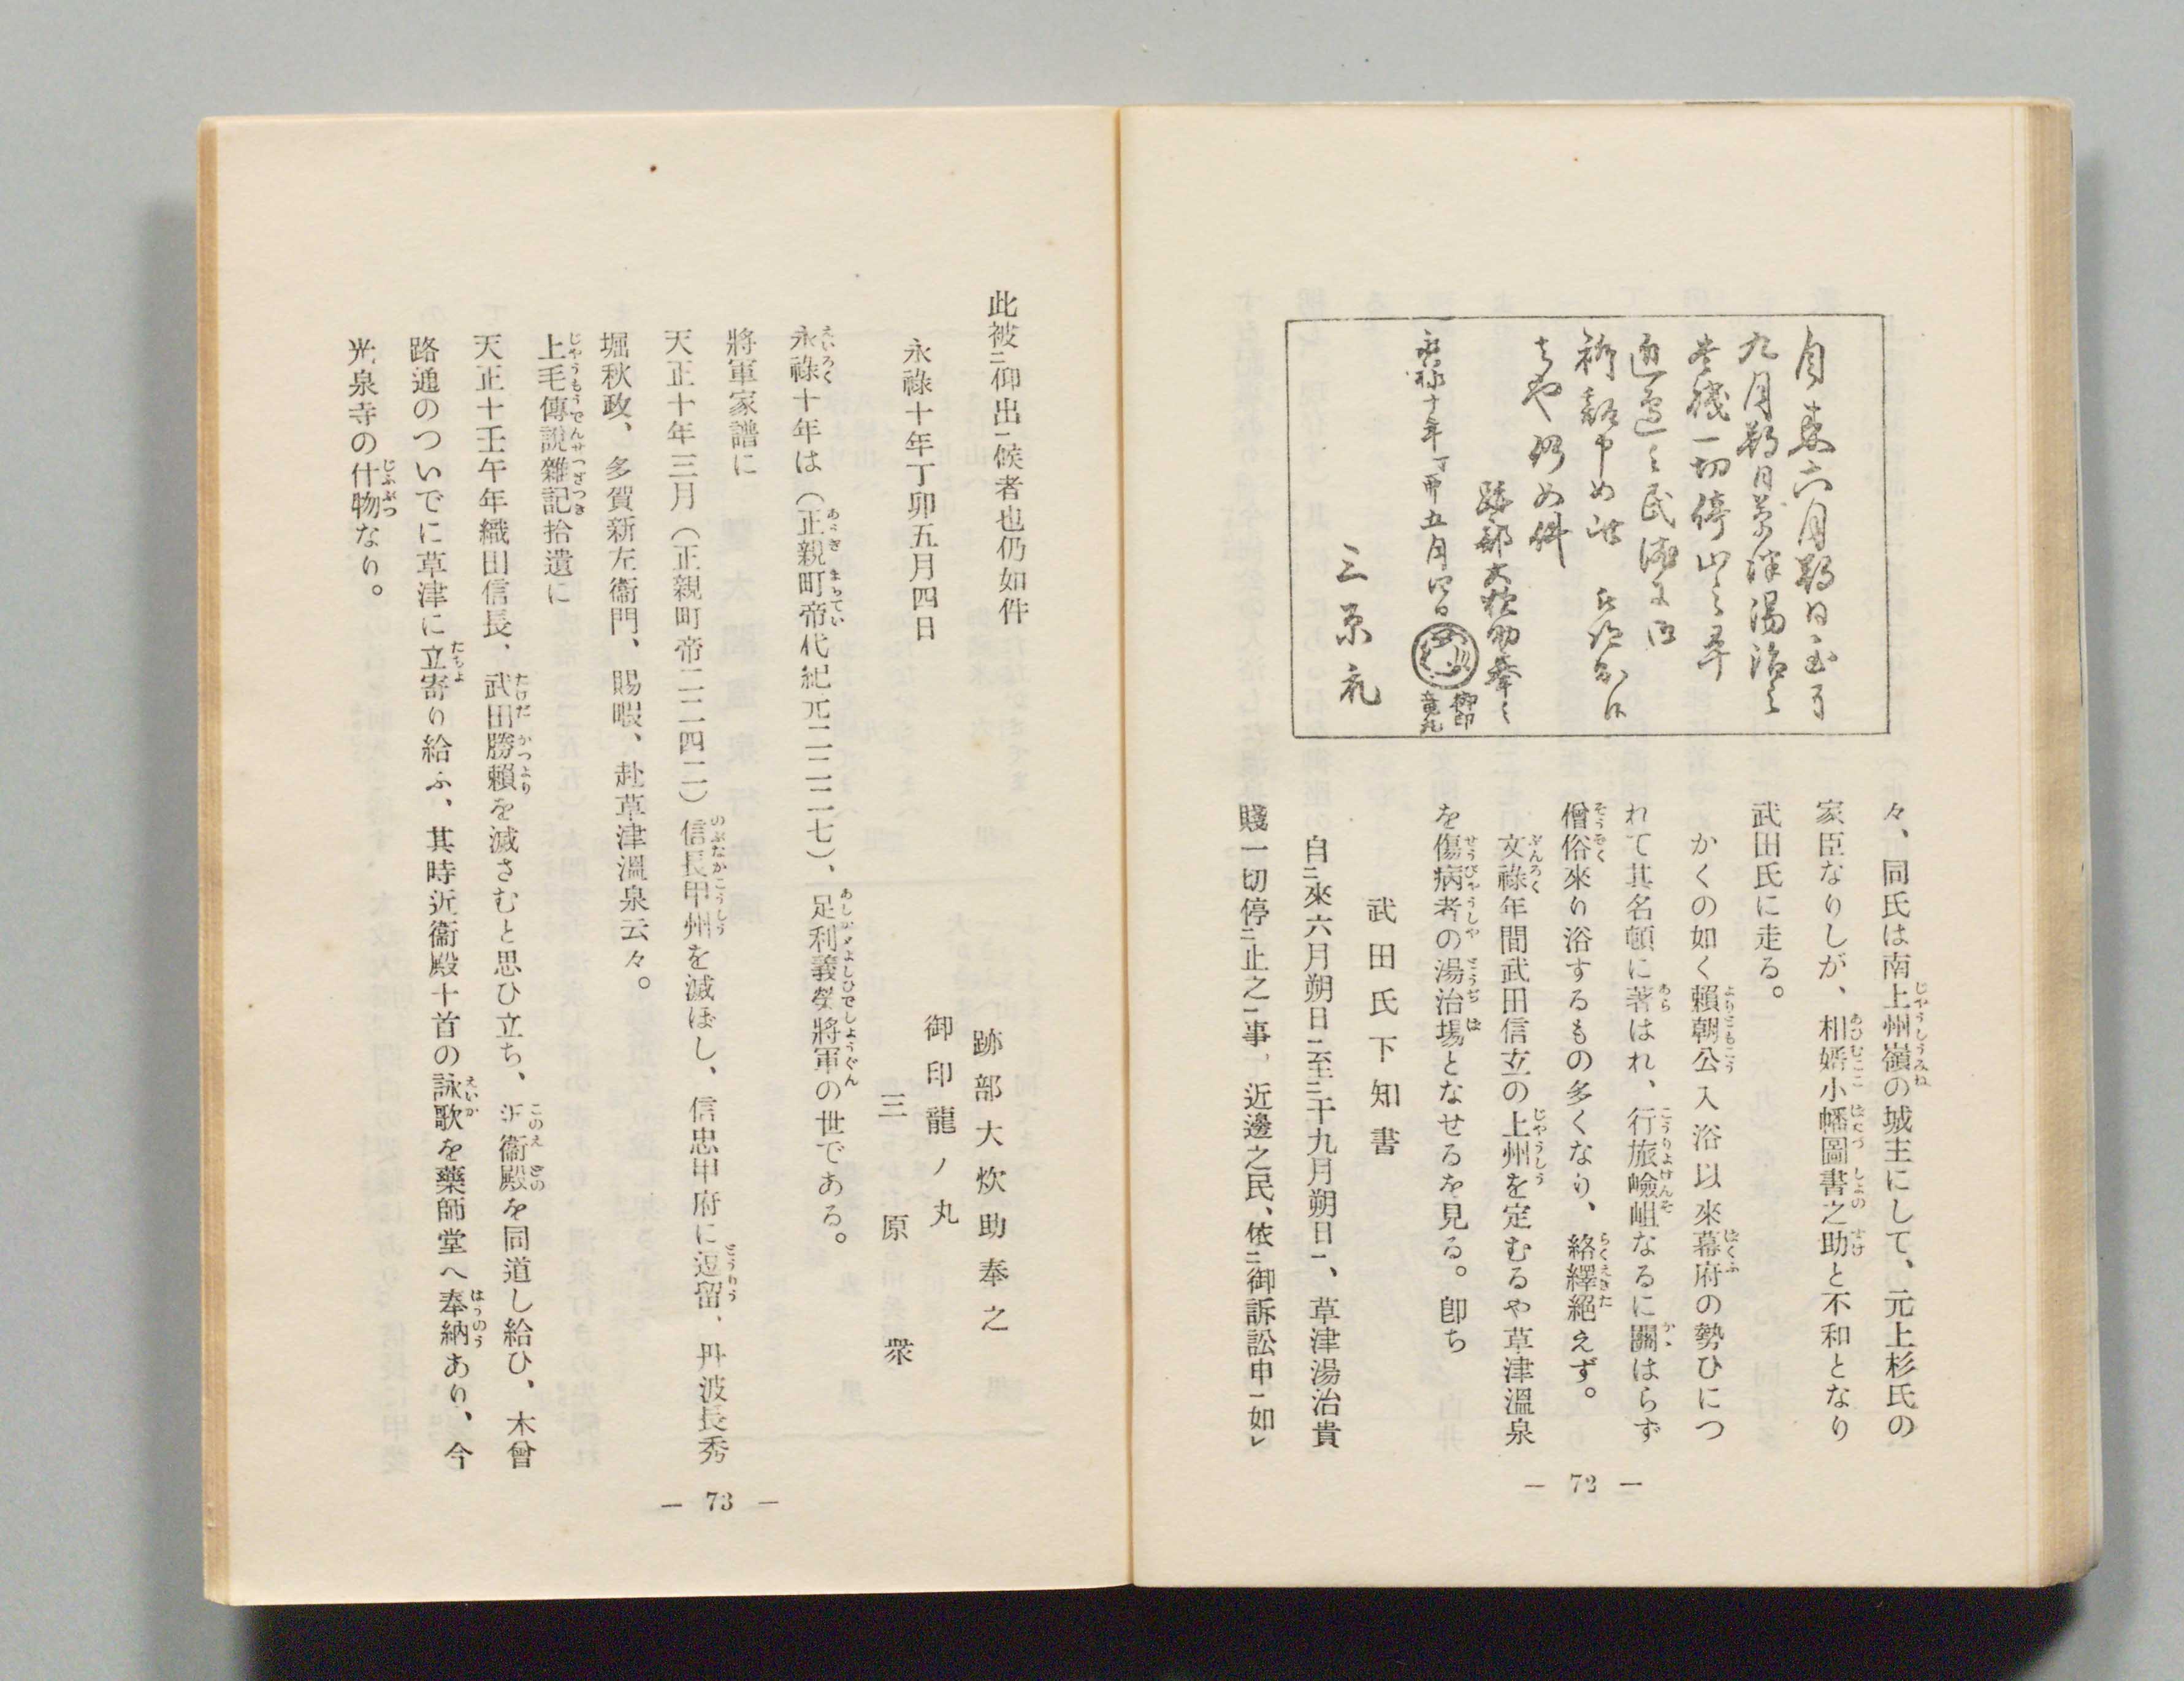 自来六月朔日至于
九月朔日草津湯治之
貴賤一切停止之畢
近辺之民依有御
訴訟申如此被仰出候
者也仍如件
跡部大炊助奉之
永禄十年丁卯五月四日
御印
竜丸
三原衆
々、同氏は南上州嶺の城主にして、元上杉氏の
家臣なりしが、相婿小幡圖書之助と不和となり
武田氏に走る。
かくの如く賴朝公入浴以來幕府の勢ひにつ
れて其名頓に著はれ、行旅嶮岨なるに關はらず
僧俗來り浴するもの多くなり、絡繹絕えず。
文祿年間武田信玄の上州を定むるや草津溫泉
を傷病者の湯治場となせるを見る。卽ち
武田氏下知書
自ニ來六月朔日一至ニ于九月朔日一、草津湯治貴
賤一切停ニ止之一事、近邊之民、依ニ御訴訟申一如レ
— 72 —
此被ニ仰出一候者也仍如件
永祿十年丁卯五月四日
跡部大炊助奉之
御印龍ノ丸
三原衆
永祿十年は（正親町帝代紀元二二二七）、足利義榮將軍の世である。
將軍家譜に
天正十年三月（正親町帝二二四二）信長甲州を滅ぼし、信忠甲府に逗留、丹波長秀
堀秋政、多賀新左衞門、賜暇、赴草津溫泉云々。
上毛傳說雜記拾遺に
天正十壬午年織田信長、武田勝賴を滅さむと思ひ立ち、近衞殿を同道し給ひ、木曾
路通のついでに草津に立寄り給ふ、其時近衞殿十首の詠歌を藥師堂へ奉納あり、今
光泉寺の什物なり。
— 73 —